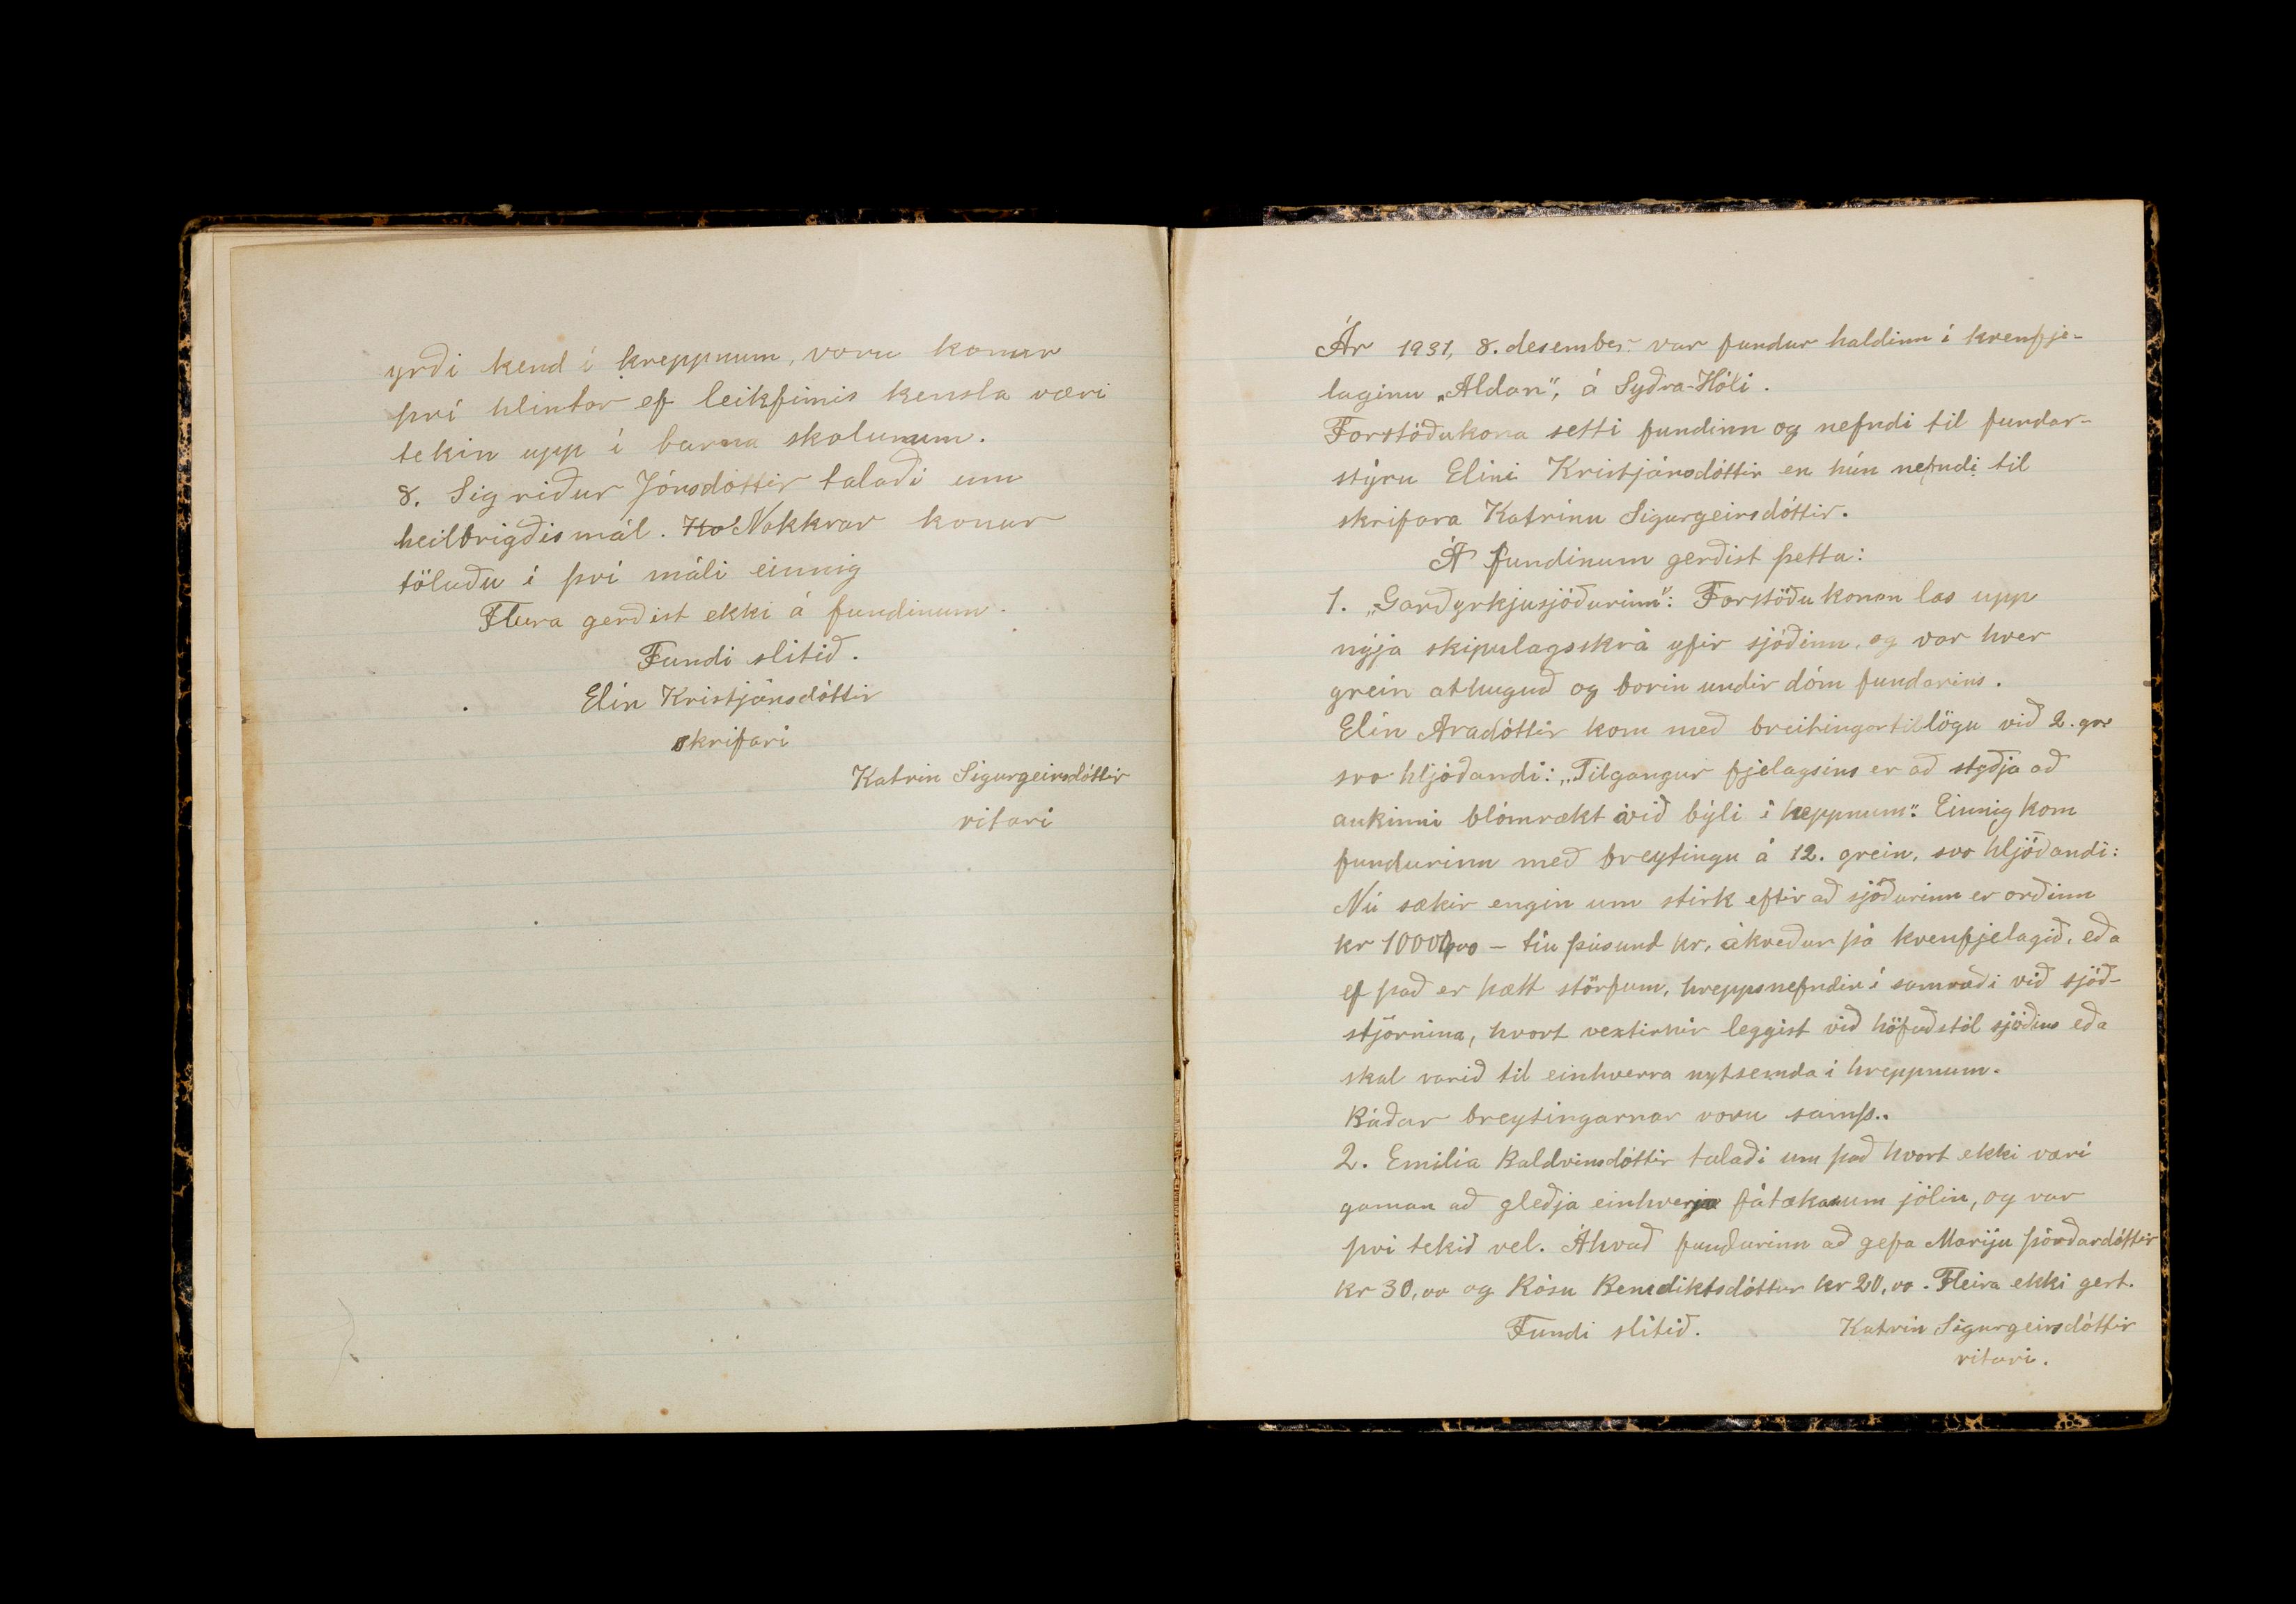 yrði kend í kreppnum, voru konur
því hlintar ef leikfimis kensla væri
tekin upp í barna skolunum.
8. Sigriður Jónsdóttir talaði um
heilbrigðismál. Ko Nokkrar konur
töluðu í því máli einnig
Fleira gerðist ekki á fundinum.
Fundi slitið.
Elín Kristjánsdóttir
skrifari
Katrin Sigurgeirsdóttir
ritari
Ár 1931, 8. desember var fundur haldinn í kvenfje-
laginu „Aldan", á Syðra-Hóli.
Forstöðukona setti fundinn og nefndi til fundar-
stýru Elíni Kristjánsdóttir en hún nefndi til
skrifara Katrínu Sigurgeirsdóttir.
Á fundinum gerðist þetta:
1. „Garðyrkjusjóðurinn": Forstöðukonan las upp
nýja skipulagsskrá yfir sjóðinn, og var hver
grein athuguð og borin undir dóm fundarins.
Elín Aradóttir kom með breitingartillögu við 2. gr.
svo hljóðandi: „Tilgangur fjelagsins er að styðja að
aukinni blómrækt við býli í hreppnum". Einnig kom
fundurinn með breytingu á 12. grein, svo hljóðandi:
Nú sækir engin um stirk eftir að sjóðurinn er orðinn
kr 10000,00 – tíu þúsund kr, ákveður þá kvenfjelagið, eða
ef það er hætt störfum, hreppsnefndin í samráði við sjóð-
stjórnina, hvort vextirnir leggist við höfuðstól sjóðins eða
skal varið til einhverra nytsemda í hreppnum.
Báðar breytingarnar voru samþ..
2. Emilía Baldvinsdóttir talaði um það hvort ekki væri
gaman að gleðja einhverja fátæka um jólin, og var
því tekið vel. Ákvað fundurinn að gefa Maríju Þórðardóttir
kr 30,00 og Rósu Benediktsdóttur kr 20,00. Fleira ekki gert.
Fundi slitið. Katrín Sigurgeirsdóttir
ritari.